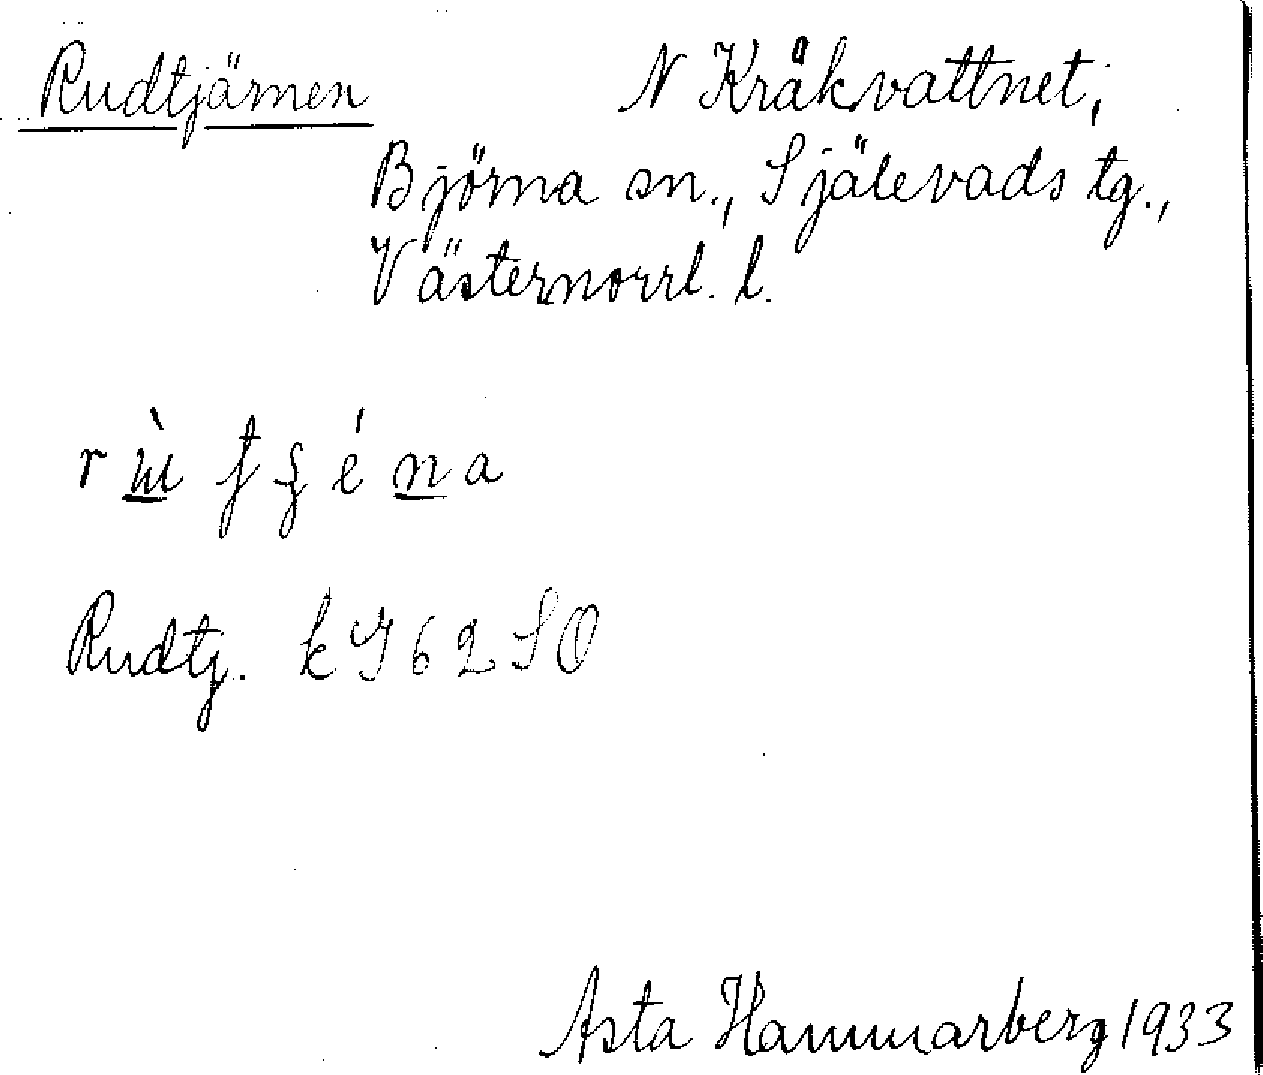 Rudtjärnen N Kråkvattnet,
Björna sn., Själevads tg.,
Västernorrl. l.
Rudtj. k J 62 SO
Asta Hammarberg 1933